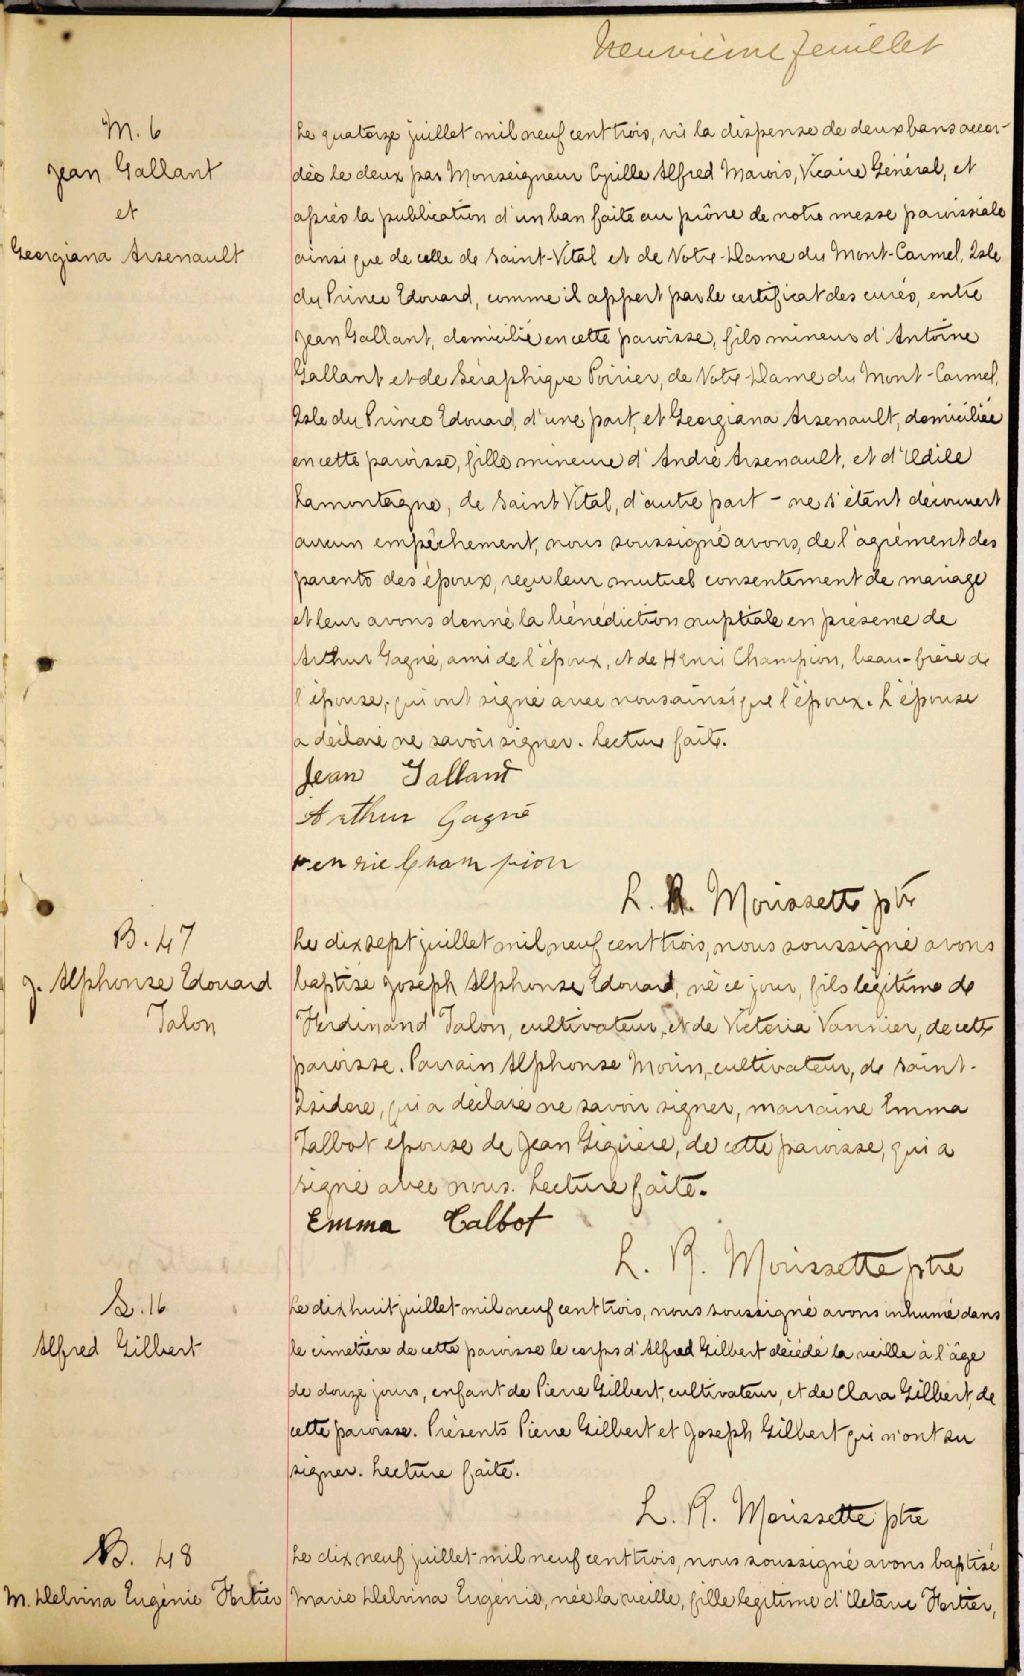 Neuvième feuillet
M. 6
Jean Gallant
et
Georgiana Arsenault
Le quatorze juillet mil neuf cent trois, vu la dispense de deux bans accor-
dée le deux par Monseigneur Cyrille Alfred Marois, Vicaire Général, et
après la publication d'un ban faite au prône de notre messe paroissiale
ainsi que de celle de Saint-Vital et de Notre-Dame du Mont-Carmel, Isle
du Prince Edouard, comme il appert par le certificat des curés, entre
Jean Gallant, domicilié en cette paroisse, fils mineur d'Antoine
Gallant et de Séraphique Poirier, de Notre-Dame du Mont-Carmel,
Isle du Prince Edouard, d'une part, et Georgiana Arsenault, domiciliée
en cette paroisse, fille mineure d'André Arsenault, et d'Odile
Lamontagne, de Saint Vital, d'autre part - ne s'étant découvert
aucun empêchement, nous soussigné avons, de l'agrément des
parents des époux, reçu leur mutuel consentement de mariage
et leur avons donné la bénédiction nuptiale en présence de
Arthur Gagné, ami de l'époux, et de Henri Champion, beau-frère de
l'épouse, qui ont signé avec nous ainsi que l'époux. L'épouse
a déclaré ne savoir signer. Lecture faite.
Jean Gallant
Arthur Gagné
Henrie Champion
L. R. Morissette ptre
B. 47
J. Alphonse Edouard
Talon
Le dix sept juillet mil neuf cent trois, nous soussigné avons
baptisé Joseph Alphonse Edouard, né ce jour, fils légitime de
Ferdinand Talon, cultivateur, et de Victoria Vannier, de cette
paroisse. Parrain Alphonse Morin, cultivateur, de Saint-
Isidore, qui a déclaré ne savoir signer, marraine Emma
Talbot épouse de Jean Giguère, de cette paroisse, qui a
signé avec nous. Lecture faite.
Emma Talbot
L. R. Morissette ptre
S. 16
Alfred Gilbert
Le dix huit juillet mil neuf cent trois, nous soussigné avons inhumé dans
le cimetière de cette paroisse le corps d'Alfred Gilbert décédé la veille à l'âge
de douze jours, enfant de Pierre Gilbert, cultivateur, et de Clara Gilbert, de
cette paroisse. Présents Pierre Gilbert et Joseph Gilbert qui n'ont su
signer. Lecture faite.
L. R. Morissette ptre
B. 48
M. Delvina Eugénie Fortier
Le dix neuf juillet mil neuf cent trois, nous soussigné avons baptisé
Marie Delvina Eugénie, née la veille, fille légitime d'Octave Fortier,